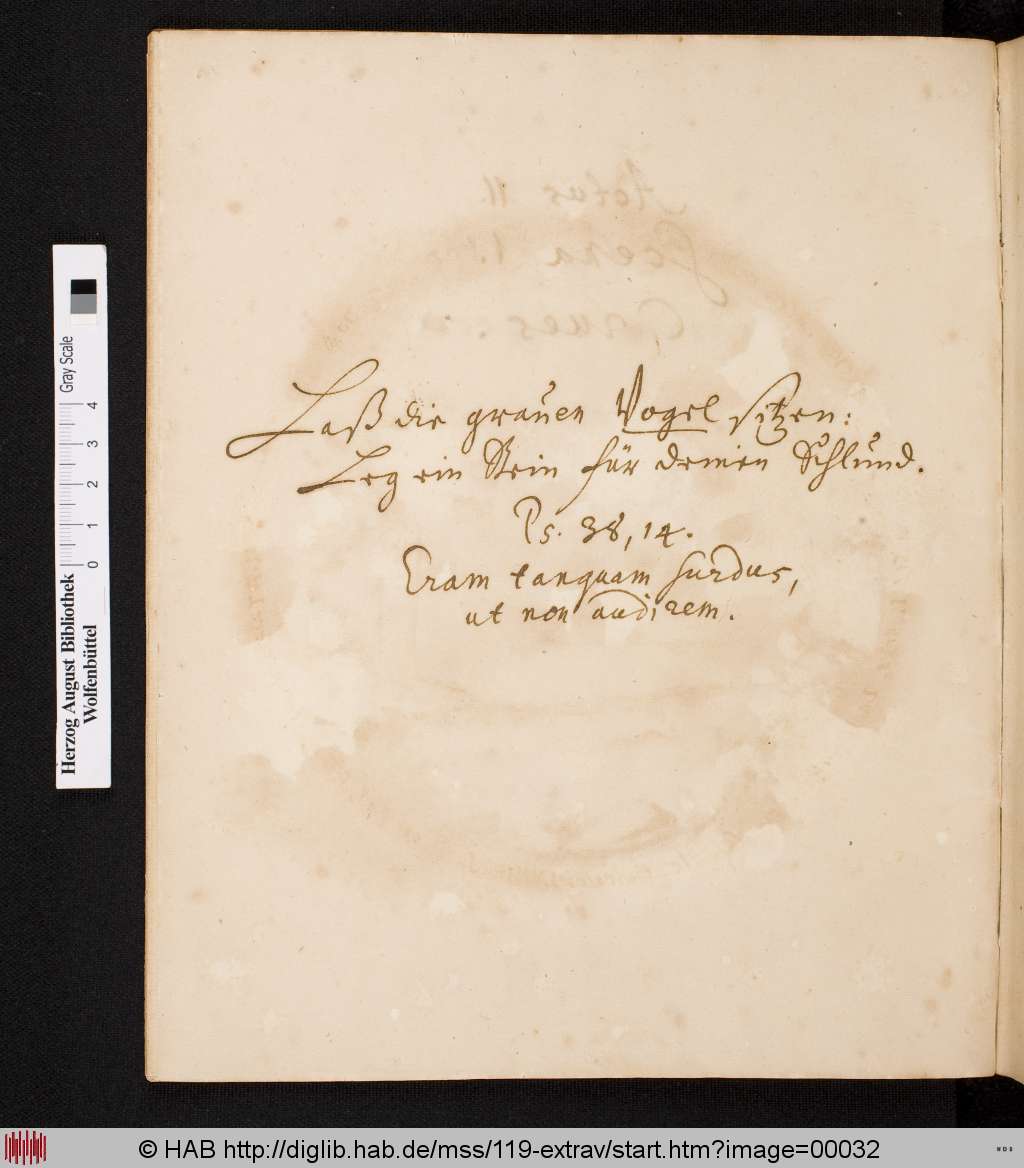 Actus II.
Scena I.
Laß die grauen Vogel sitzen:
Leg ein Stein für deinen Schlund.
Ps. 38, 14.
Eram tanquam surdus,
ut non audirem.
Herzog August Bibliothek
Wolfenbüttel
0 1 2 3 4
Gray Scale
© HAB http://diglib.hab.de/mss/119-extrav/start.htm?image=00032